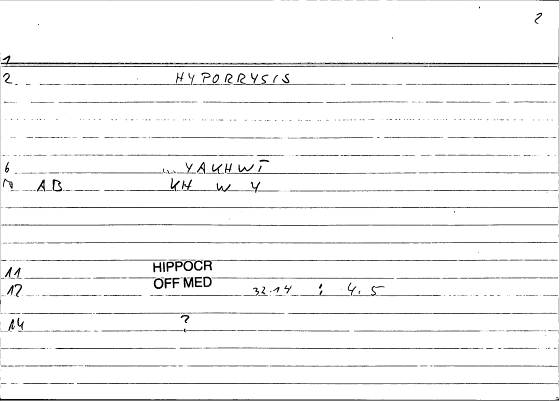 2
1
2 HYPORRYSIS
6 ... YAKHWT
AB KH W Y
11 HIPPOCR
12 OFF MED 32.14 : 4.5
14 ?